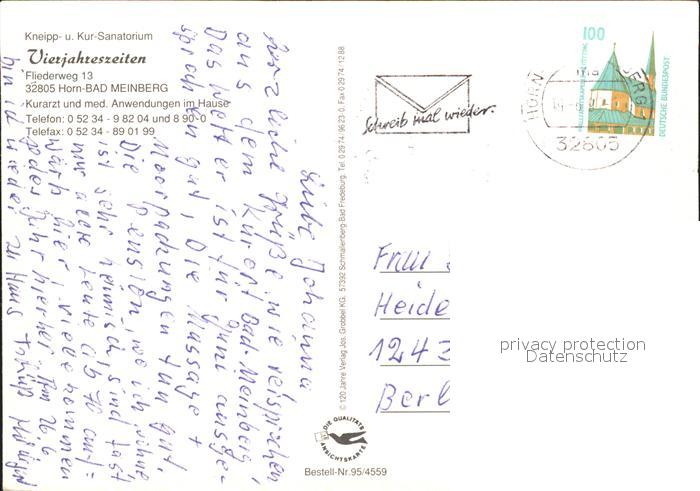 Kneipp- u. Kur-Sanatorium
Vierjahreszeiten
Fliederweg 13
32805 Horn-BAD MEINBERG
Kurarzt und med. Anwendungen im Hause
Telefon: 0 52 34 - 9 82 04 und 8 90-0
Telefax: 0 52 34 - 89 01 99
Liebe Johanna
herzliche Grüße wie versprochen
aus dem Kurort Bad-Meinberg,
Das Wetter ist für Juni ausge-
sprochen gut, Die Massage +
Moorpackungen tun gut.
Die Pension, wo ich wohne
ist sehr heimisch, sind fast
nur alte Leute ab 70 auf=
wärts hier, viele kommen
jedes Jahr hierher. Am 26.6
bin ich wieder zu Haus
© 120 Jahre Verlag Jos. Grobbel KG, 57392 Schmallenberg-Bad Fredeburg, Tel. 0 29 74 - 96 23-0, Fax 0 29 74-12 88
DIE QUALITÄTS
ANSICHTSKARTE
Bestell-Nr. 95/4559
Schreib mal wieder.
HORN
BERG
32805
100
DEUTSCHE BUNDESPOST
Frau
Heide
1243
Berl
privacy protection
Datenschutz